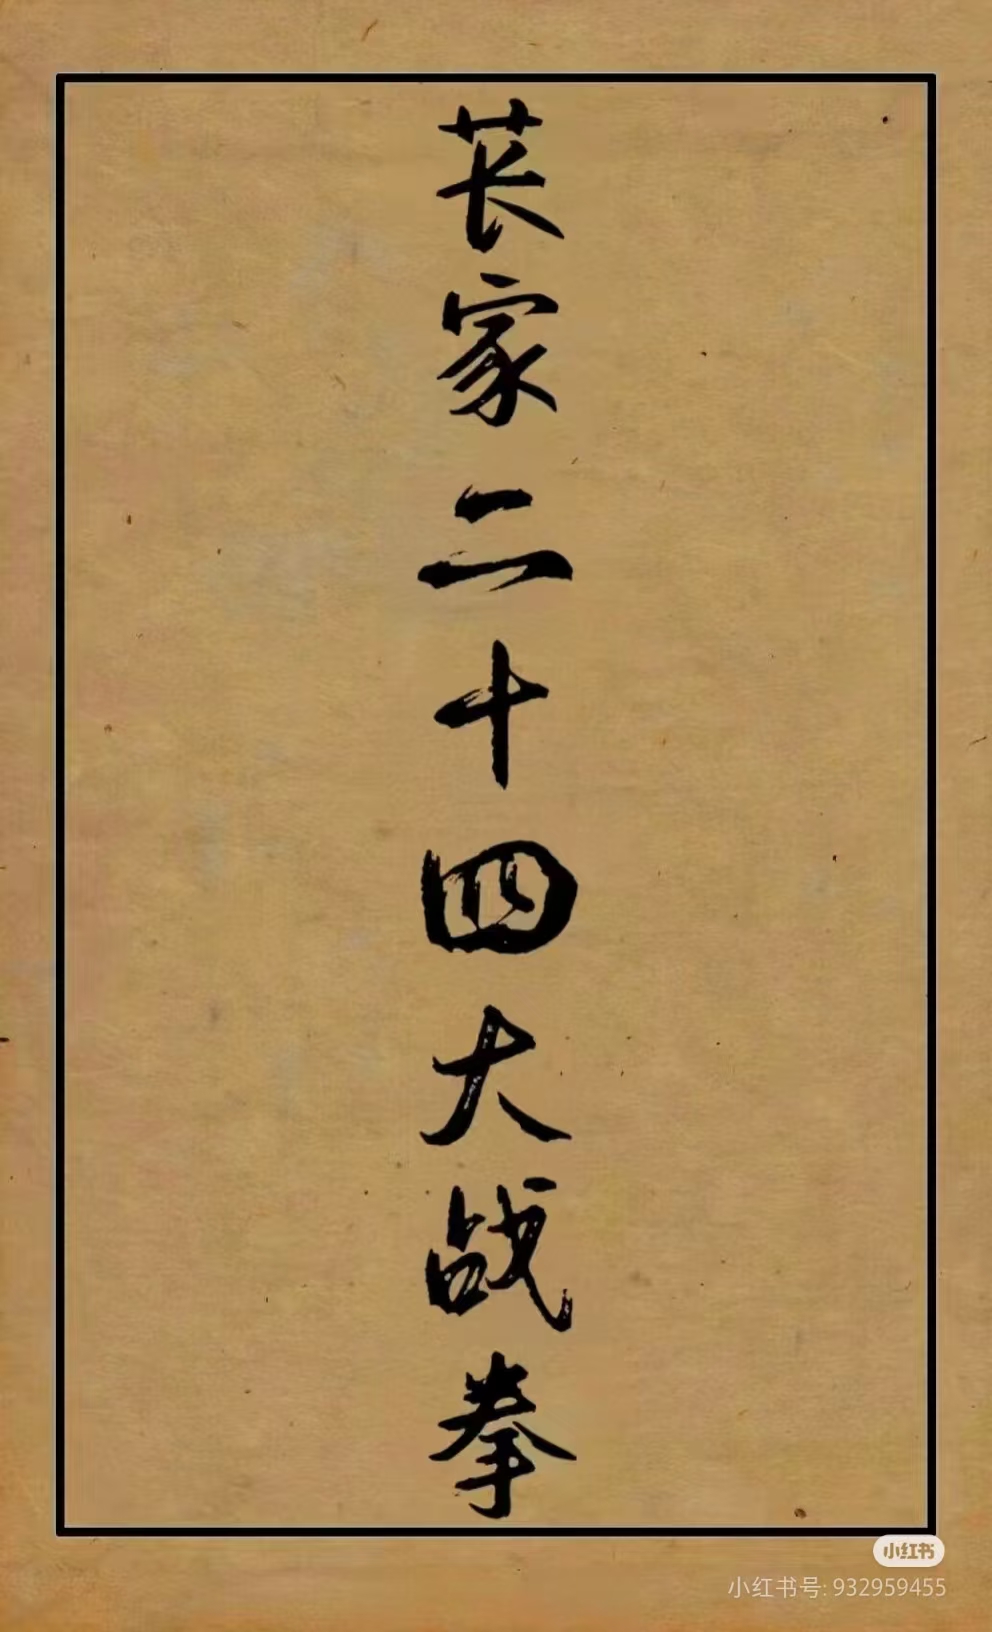 苌家二十四大战拳
小红书
小红书号: 932959455